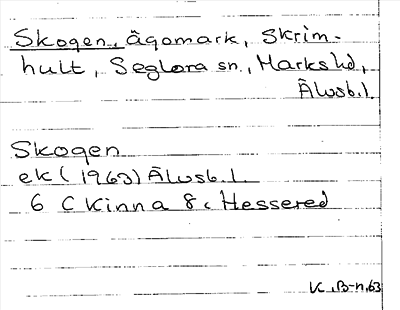 Skogen, ägomark, Skrim-
hult, Seglora sn, Marks hd,
Älvsb.l.
Skogen
ek (1963) Älvsb. l
6 C Kinna 8c Hessered
63